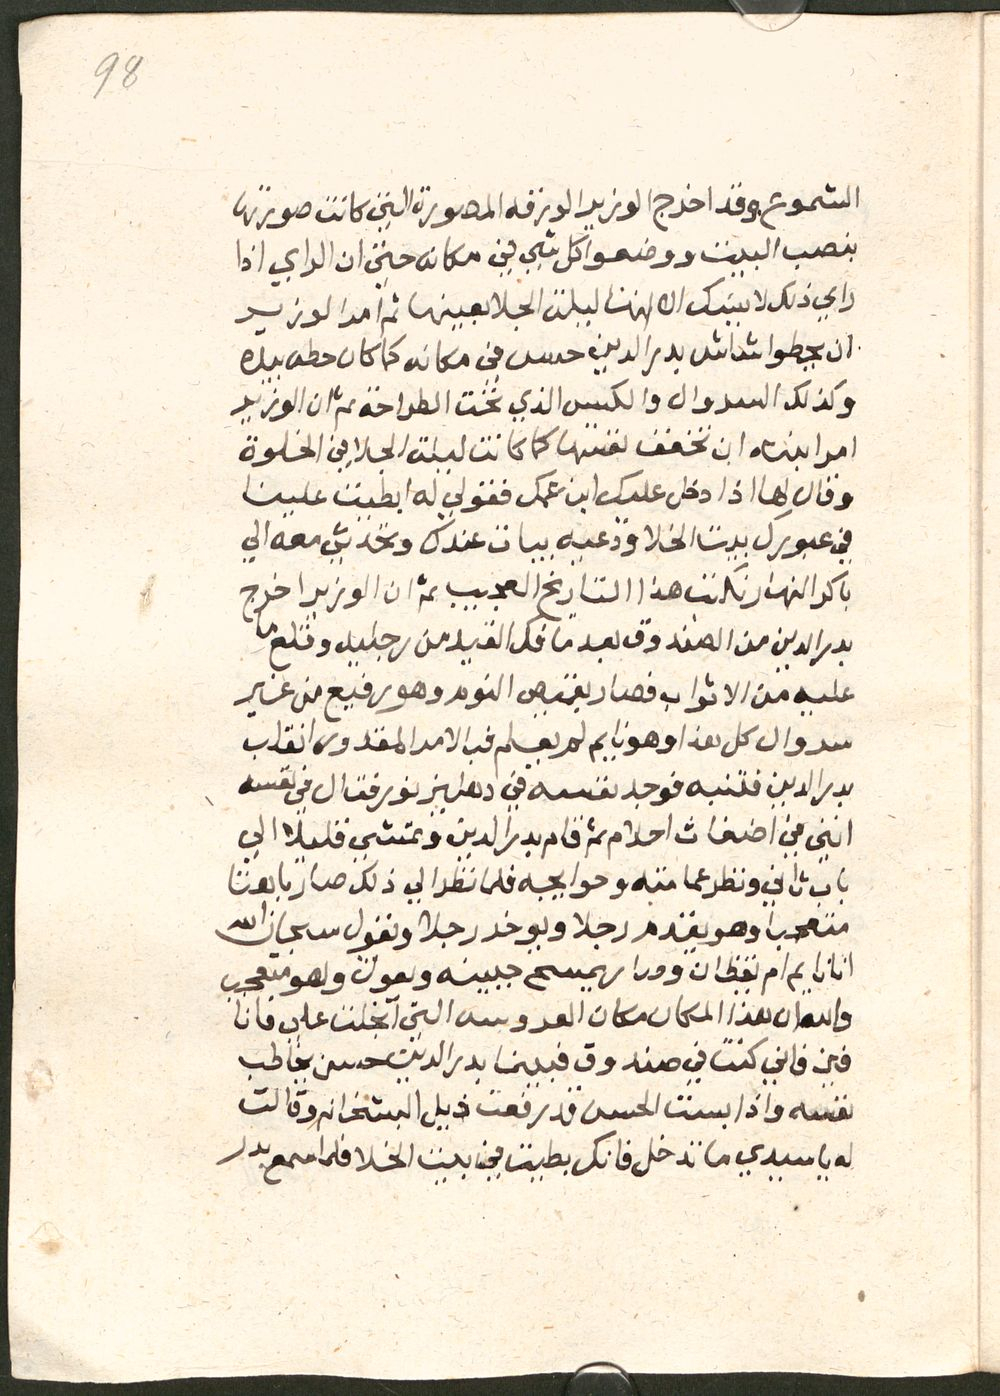 98
الشموع وقد اخرج الوزير الورقه المصورة التي كانت صورتها
بنصب البيت ووضعوا كل شي في مكانه حتي ان الراي اذا
راي ذلك لا يشك الا انها ليلت الجلا بعينها ثم امر الوزير
ان يحطوا شاش بدر الدين حسن في مكانه كما كان حطه بيده
وكذلك السروال والكيس الذي تحت الطراحه ثم ان الوزير
امر ابنته ان تخفف نفسها كما كانت ليلت الجلا في الخلوة
وقال لها اذا دخل عليك ابن عمك فقولي له ابطيت علينا
في عبورك بيت الخلا ودعيه يبات عندك وتحدثي معه الي
باكر النهار نكتب هذا التاريخ العجيب ثم ان الوزير اخرج
بدر الدين من الصندوق بعد ما فك القيد من رجليه وقلع ما
عليه من الاثواب فصار بقميص النوم وهو رفيع من غير
سروال كل هذا وهو نايم لم يعلم فبالامر المقدور انقلب
بدر الدين فتنبه فوجد نفسه في دهليز نور فقال في نفسه
انني في اضغاث احلام ثم قام بدر الدين وتمشي قليلا الي
باب ثاني ونظر عمامته وحوايجه فلما نظر الي ذلك صار باهتا
متعجبا وهو يقدم رجلا ويوخر رجلا ويقول سبحان الله
انا نايم ام يقظان وصار يمسح جبينه ويقول وهو متعجب
والله ان هذا المكان مكان العروسه التي انجلت علي فانا
فين فاني كنت في صندوق فبينما بدر الدين حسن يخاطب
نفسه واذا بست الحسن قد رفعت ذيل البشخانه وقالت
له يا سيدي ما تدخل فانك بطيت في بيت الخلا فلما سمع بدر